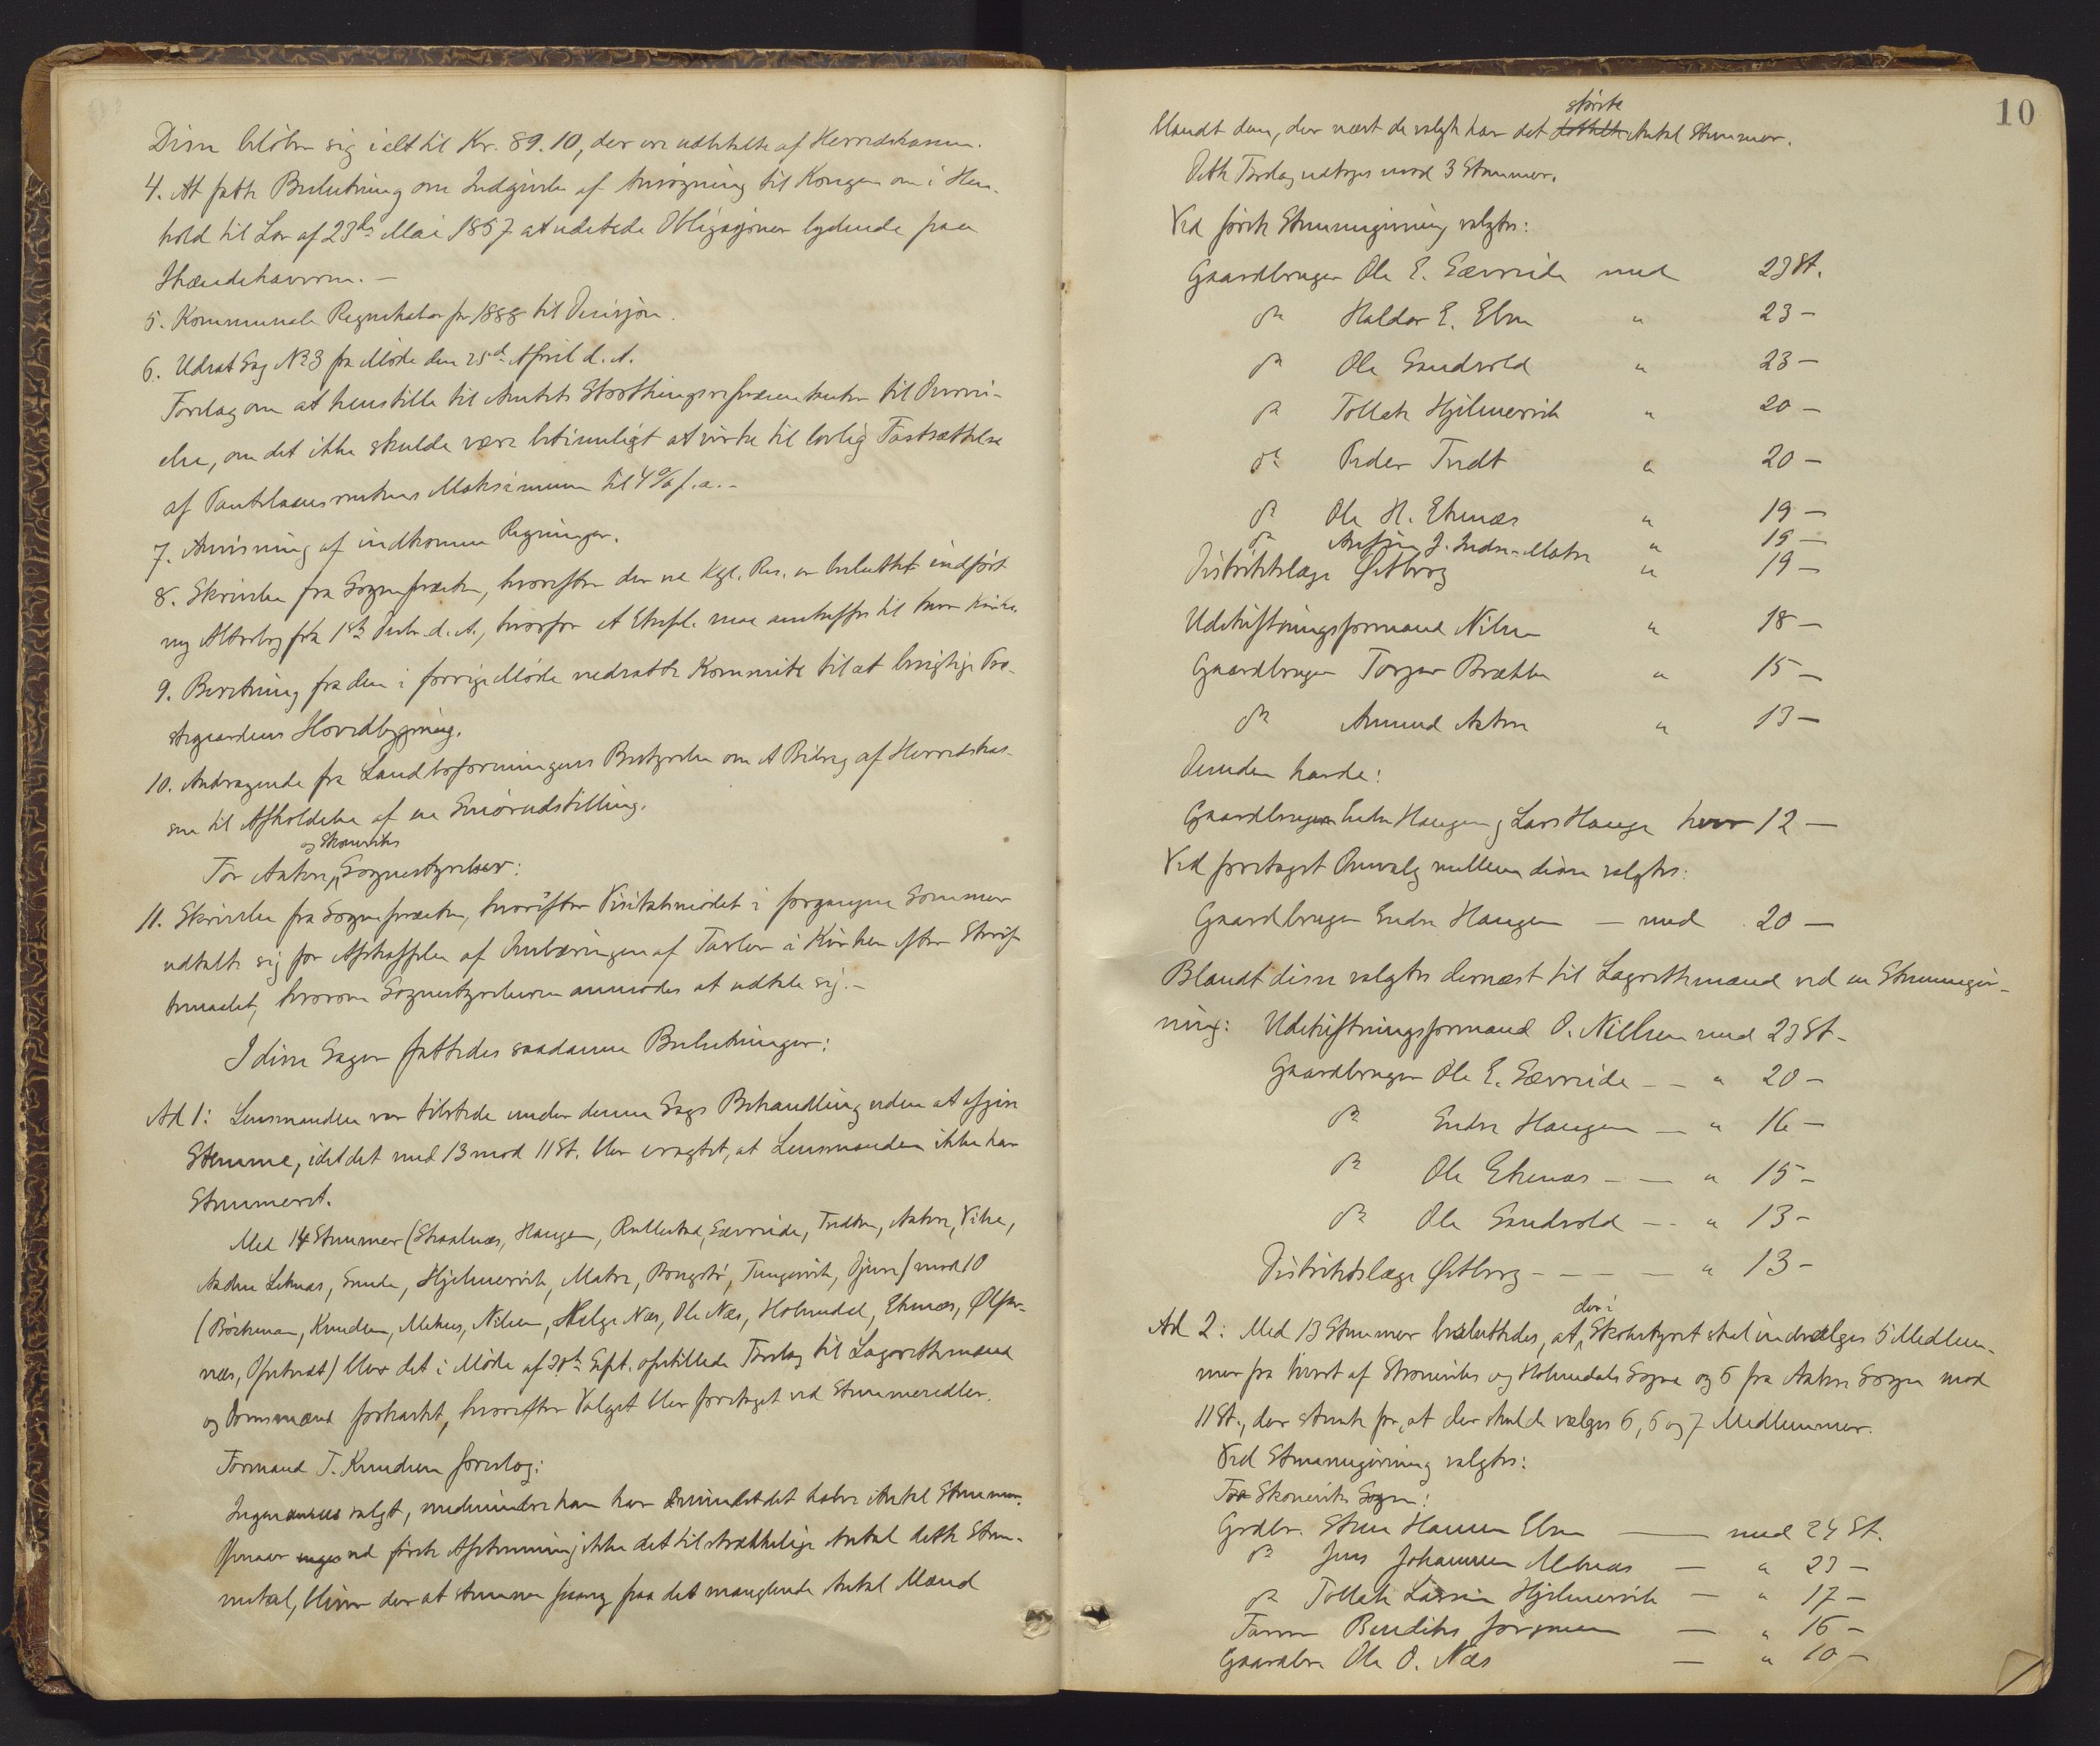 Disse beløber sig ialt til Kr. 89.10, der ere udbetalte af Herredskassen.
4. At fatte Beslutning om Indgivelse af Ansøgning til Kongen om i Hen-
hold til Lov af 23de Mai 1857 at udstede Obligasjoner lydende paa
Ihændehaveren. —
5. Kommunale Regnskaber for 1888 til Desisjon.
6. Udsat Sag No 3 fra Møde den 25de April d. A.
Forslag om at henstille til Amtets Storthingsrepræsentanter til Overvei-
else, om det ikke skulde være betimeligt at virke til lovlig Fastsættelse
af Pantelaansrentens Maksimum til 4 % p. a. –
7. Anvisning af indkomne Regninger.
8. Skrivelse fra Sognepræsten, hvorefter der ved Kgl. Res. er besluttet indført
ny Alterbog fra 1ste Decbr. d. A., hvorfor et Expl. maa anskaffes til hver Kirke.
9. Beretning fra den i forrige Møde nedsatte Kommite til at besigtige Præ-
stegaardens Hovedbygning.
10. Andragende fra Landboforeningens Bestyrelse om et Bidrag af Herredskas-
sen til Afholdelse af en Smørudstilling.
og Skoneviks
For Aakre Sognestyrelser:
11. Skrivelse fra Sognepræsten, hvorefter Visitatsmødet i forgangne Sommer
udtalte sig for Afskaffelse af Ombæringen af Tavlen i Kirken efter Skrif-
temaalet, hvorom Sognestyrelserne anmodes at udtale sig. –
I disse Sager fattedes saadanne Beslutninger:
Ad 1: Lensmanden var tilstede under denne Sags Behandling uden at afgive
Stemme, idet det med 13 mod 11 St. blev vragtet, at Lensmanden ikke har
Stemmeret.
Med 14 Stemmer (Skaalnæs, Haugen, Rullestad, Sævreide, Tredten, Aakre, Vike,
Anders Leknæs, Emde, Hjelmervik, Matre, Bongstø, Tungesvik, Djuve) mod 10
(Böckman, Knudsen, Mehus, Nilsen, Helge Næs, Ole Næs, Holmedal, Ekenæs, Ølfær-
næs, Opstveit) blev det i Møde af 30te Sept. opstillede Forslag til Lagrettemænd
og Domsmænd forkastet, hvorefter Valget blev foretaget ved Stemmesedler.
Formand T. Knudsen foreslog:
Ingen ansees valgt, medmindre han har mindst det halve Antal Stemmer.
Opnaar ingen ved første Afstemning ikke det tilstrækkelige Antal dette Stem-
metal, bliver der at stemme paany paa det manglende Antal Mænd
10
største
blandt dem, der næst de valgte har det Antal Stemmer.
Dette Forslag vedtoges mod 3 Stemmer.
Ved første Stemmegivning valgtes:
Gaardbruger Ole E. Sævreide med 23 St.
do Haldor E. Ebne " 23 –
do Ole Sandvold " 23 –
do Tollak Hjelmervik " 20 –
do Peder Tredt " 20 –
do Ole H. Ekenæs " 19 –
do Anfin J. Indre-Matre " 19 –
Distriktslæge Østberg " 19 –
Udskiftningsformand Nilsen " 18 –
Gaardbruger Torger Brække " 15 –
do Amund Aakre " 13 –
Desuden havde:
Gaardbruger Endre Haugen og Lars Hauge hver 12 –
Ved foretaget Omvalg mellem disse valgtes:
Gaardbruger Endre Haugen – med 20 –
Blandt disse valgtes dernæst til Lagrettemænd ved en Stemmegiv-
ning: Udskiftningsformand O. Nielsen med 23 St –
Gaardbruger Ole E. Sævreide – – " 20 –
do Endre Haugen – " 16 –
do Ole Ekenæs – – " 15 –
do Ole Sandvold – – " 13 –
Distriktslæge Østberg – – – – " 13 –
der i
Ad 2: Med 13 Stemmer besluttedes, at Skolestyret skal indvælges 5 Medlem-
mer fra hvert af Skoneviks og Holmedals Sogne og 6 fra Aakre Sogn mod
11 St., der stemte for, at der skulde vælges 6, 6 og 7 Medlemmer.
Ved Stemmegivning valgtes:
For Skoneviks Sogn:
Grdbr. Sten Hansen Ebne — med 24 St.
do Jens Johannesen Milnæs — " 23 –
do Tollak Larsen Hjelmervik — " 17 –
Farver Bendiks Jørgensen — " 16 –
Gaardbr. Ole O. Næs — " 10 –